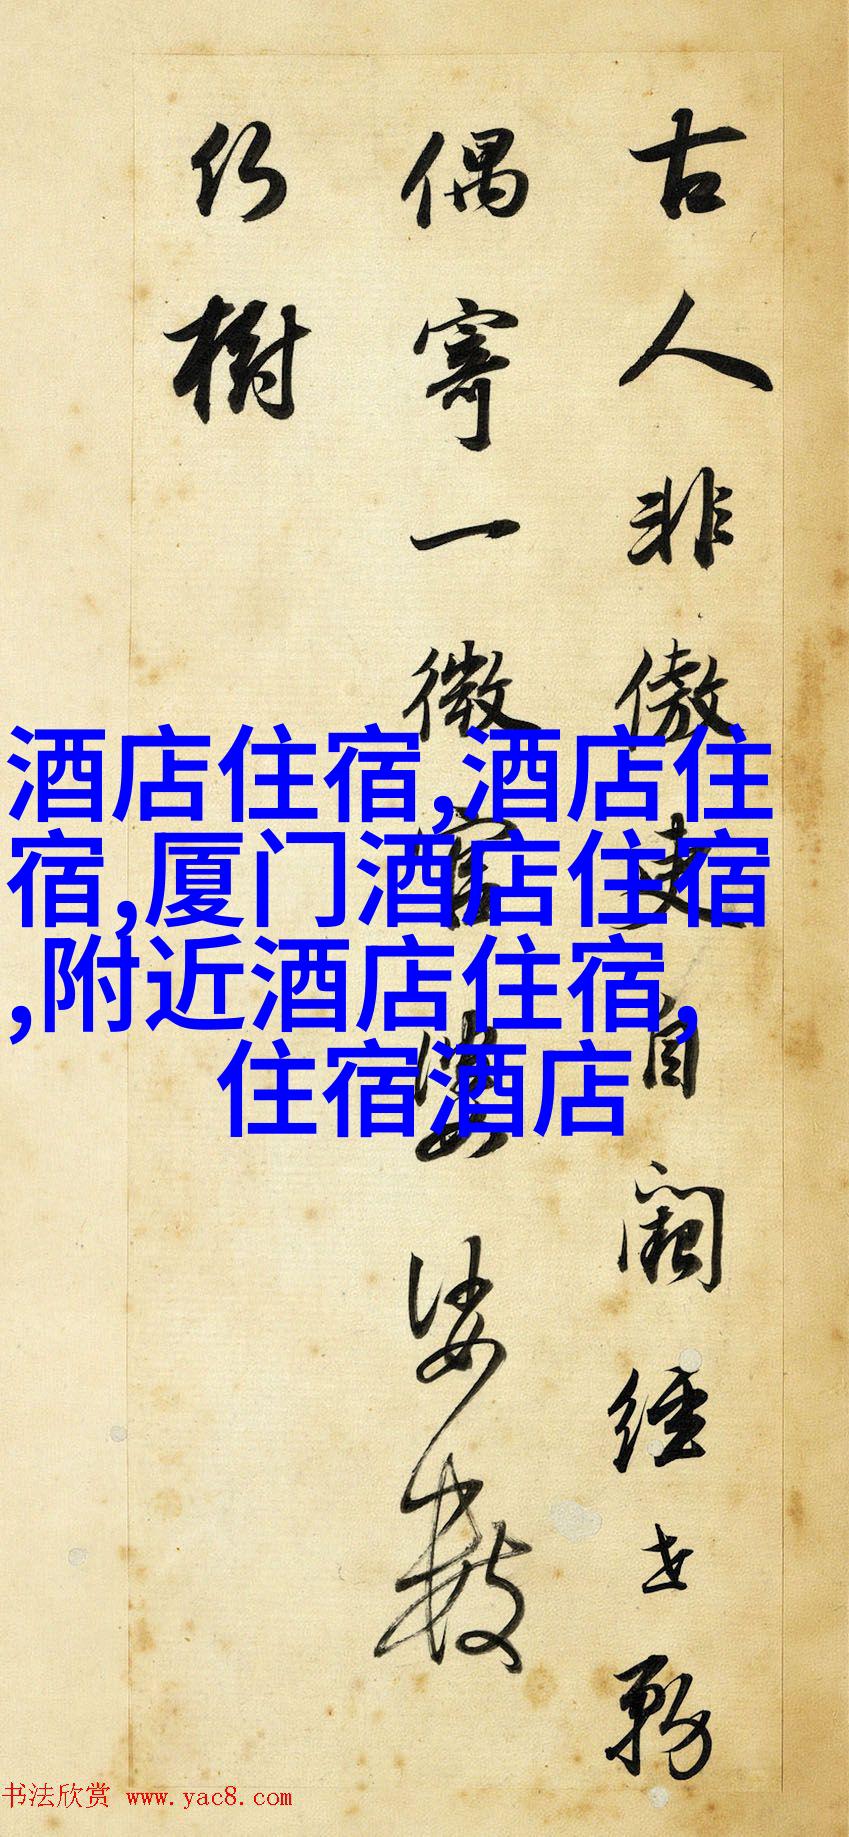 古人非傲吏自闕經世務
偶寄一微官婆娑數
行樹
酒店住宿,酒店住
宿,厦门酒店住宿
,附近酒店住宿,
住宿酒店
书法欣赏 www.yac8.com